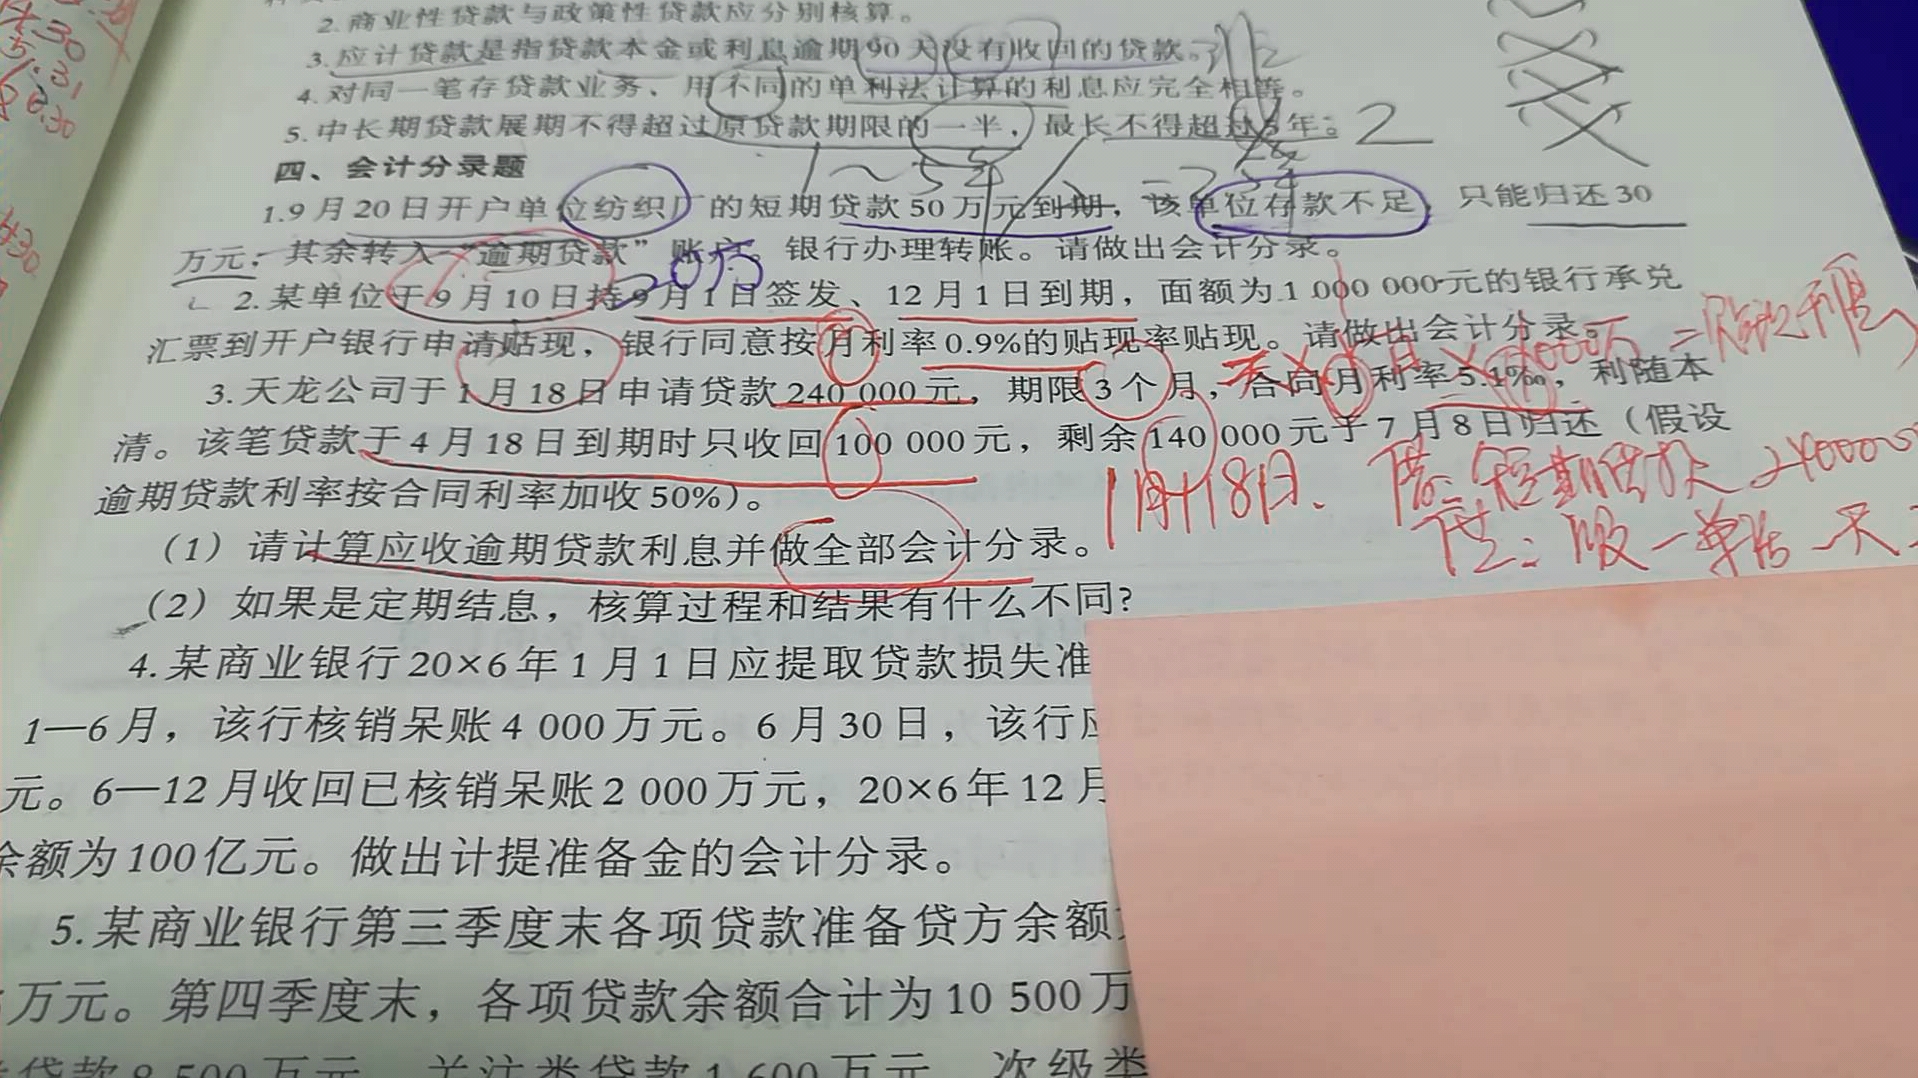 2.商业性贷款与政策性贷款应分别核算。
3.应计贷款是指贷款本金或利息逾期90天没有收回的贷款。
4.对同一笔存贷款业务、用不同的单利法计算的利息应完全相等。
5.中长期贷款展期不得超过原贷款期限的一半,最长不得超过3年。 2
四、会计分录题
1.9月20日开户单位纺织厂的短期贷款50万元到期,该单位存款不足,只能归还30
万元,其余转入“逾期贷款”账户。银行办理转账。请做出会计分录。
20万
2.某单位于9月10日持9月1日签发、12月1日到期,面额为1 000 000元的银行承兑
汇票到开户银行申请贴现,银行同意按月利率0.9%的贴现率贴现。请做出会计分录。
3.天龙公司于1月18日申请贷款240 000元,期限3个月,合同月利率5.1‰,利随本
清。该笔贷款于4月18日到期时只收回100 000元,剩余140 000元于7月8日归还(假设
逾期贷款利率按合同利率加收50%)。
1月18日、借:短期贷款 240000
(1)请计算应收逾期贷款利息并做全部会计分录。
(2)如果是定期结息,核算过程和结果有什么不同?
4.某商业银行20×6年1月1日应提取贷款损失准
1—6月,该行核销呆账4 000万元。6月30日,该行应
元。6—12月收回已核销呆账2 000万元,20×6年12月
余额为100亿元。做出计提准备金的会计分录。
5.某商业银行第三季度末各项贷款准备贷方余额
万元。第四季度末,各项贷款余额合计为10 500万
贷款8 500万元,关注类贷款1 600万元,次级类